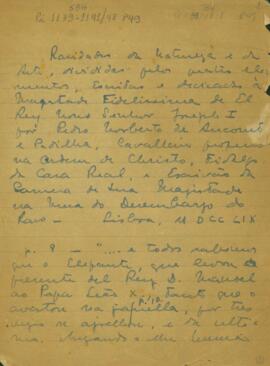 SBH
Pi 1139-1142/48 P49
Raridades da Natureza e da
Arte, divididas pelos quatro ele-
mentos, escritas e dedicadas à
Magestade Fidelissima de El
Rey Nosso Senhor Joseph I
por Pedro Norberto de Aucourt
e Padilha, Cavalleiro professo
na Ordem de Christo, Fidalgo
da Casa Real, e Escrivão da
Camera de Sua Magestade
na Mesa do Desembargo do
Paço — Lisboa, M DCC LIX
p. 9 — "... e todos sabemos
que o Elefante, que levou de
presente del Rey D. Manoel
ao Papa Leão X, tanto que o
avistou na janella, por tres
vezes se ajoelhou, e da ulti-
ma,